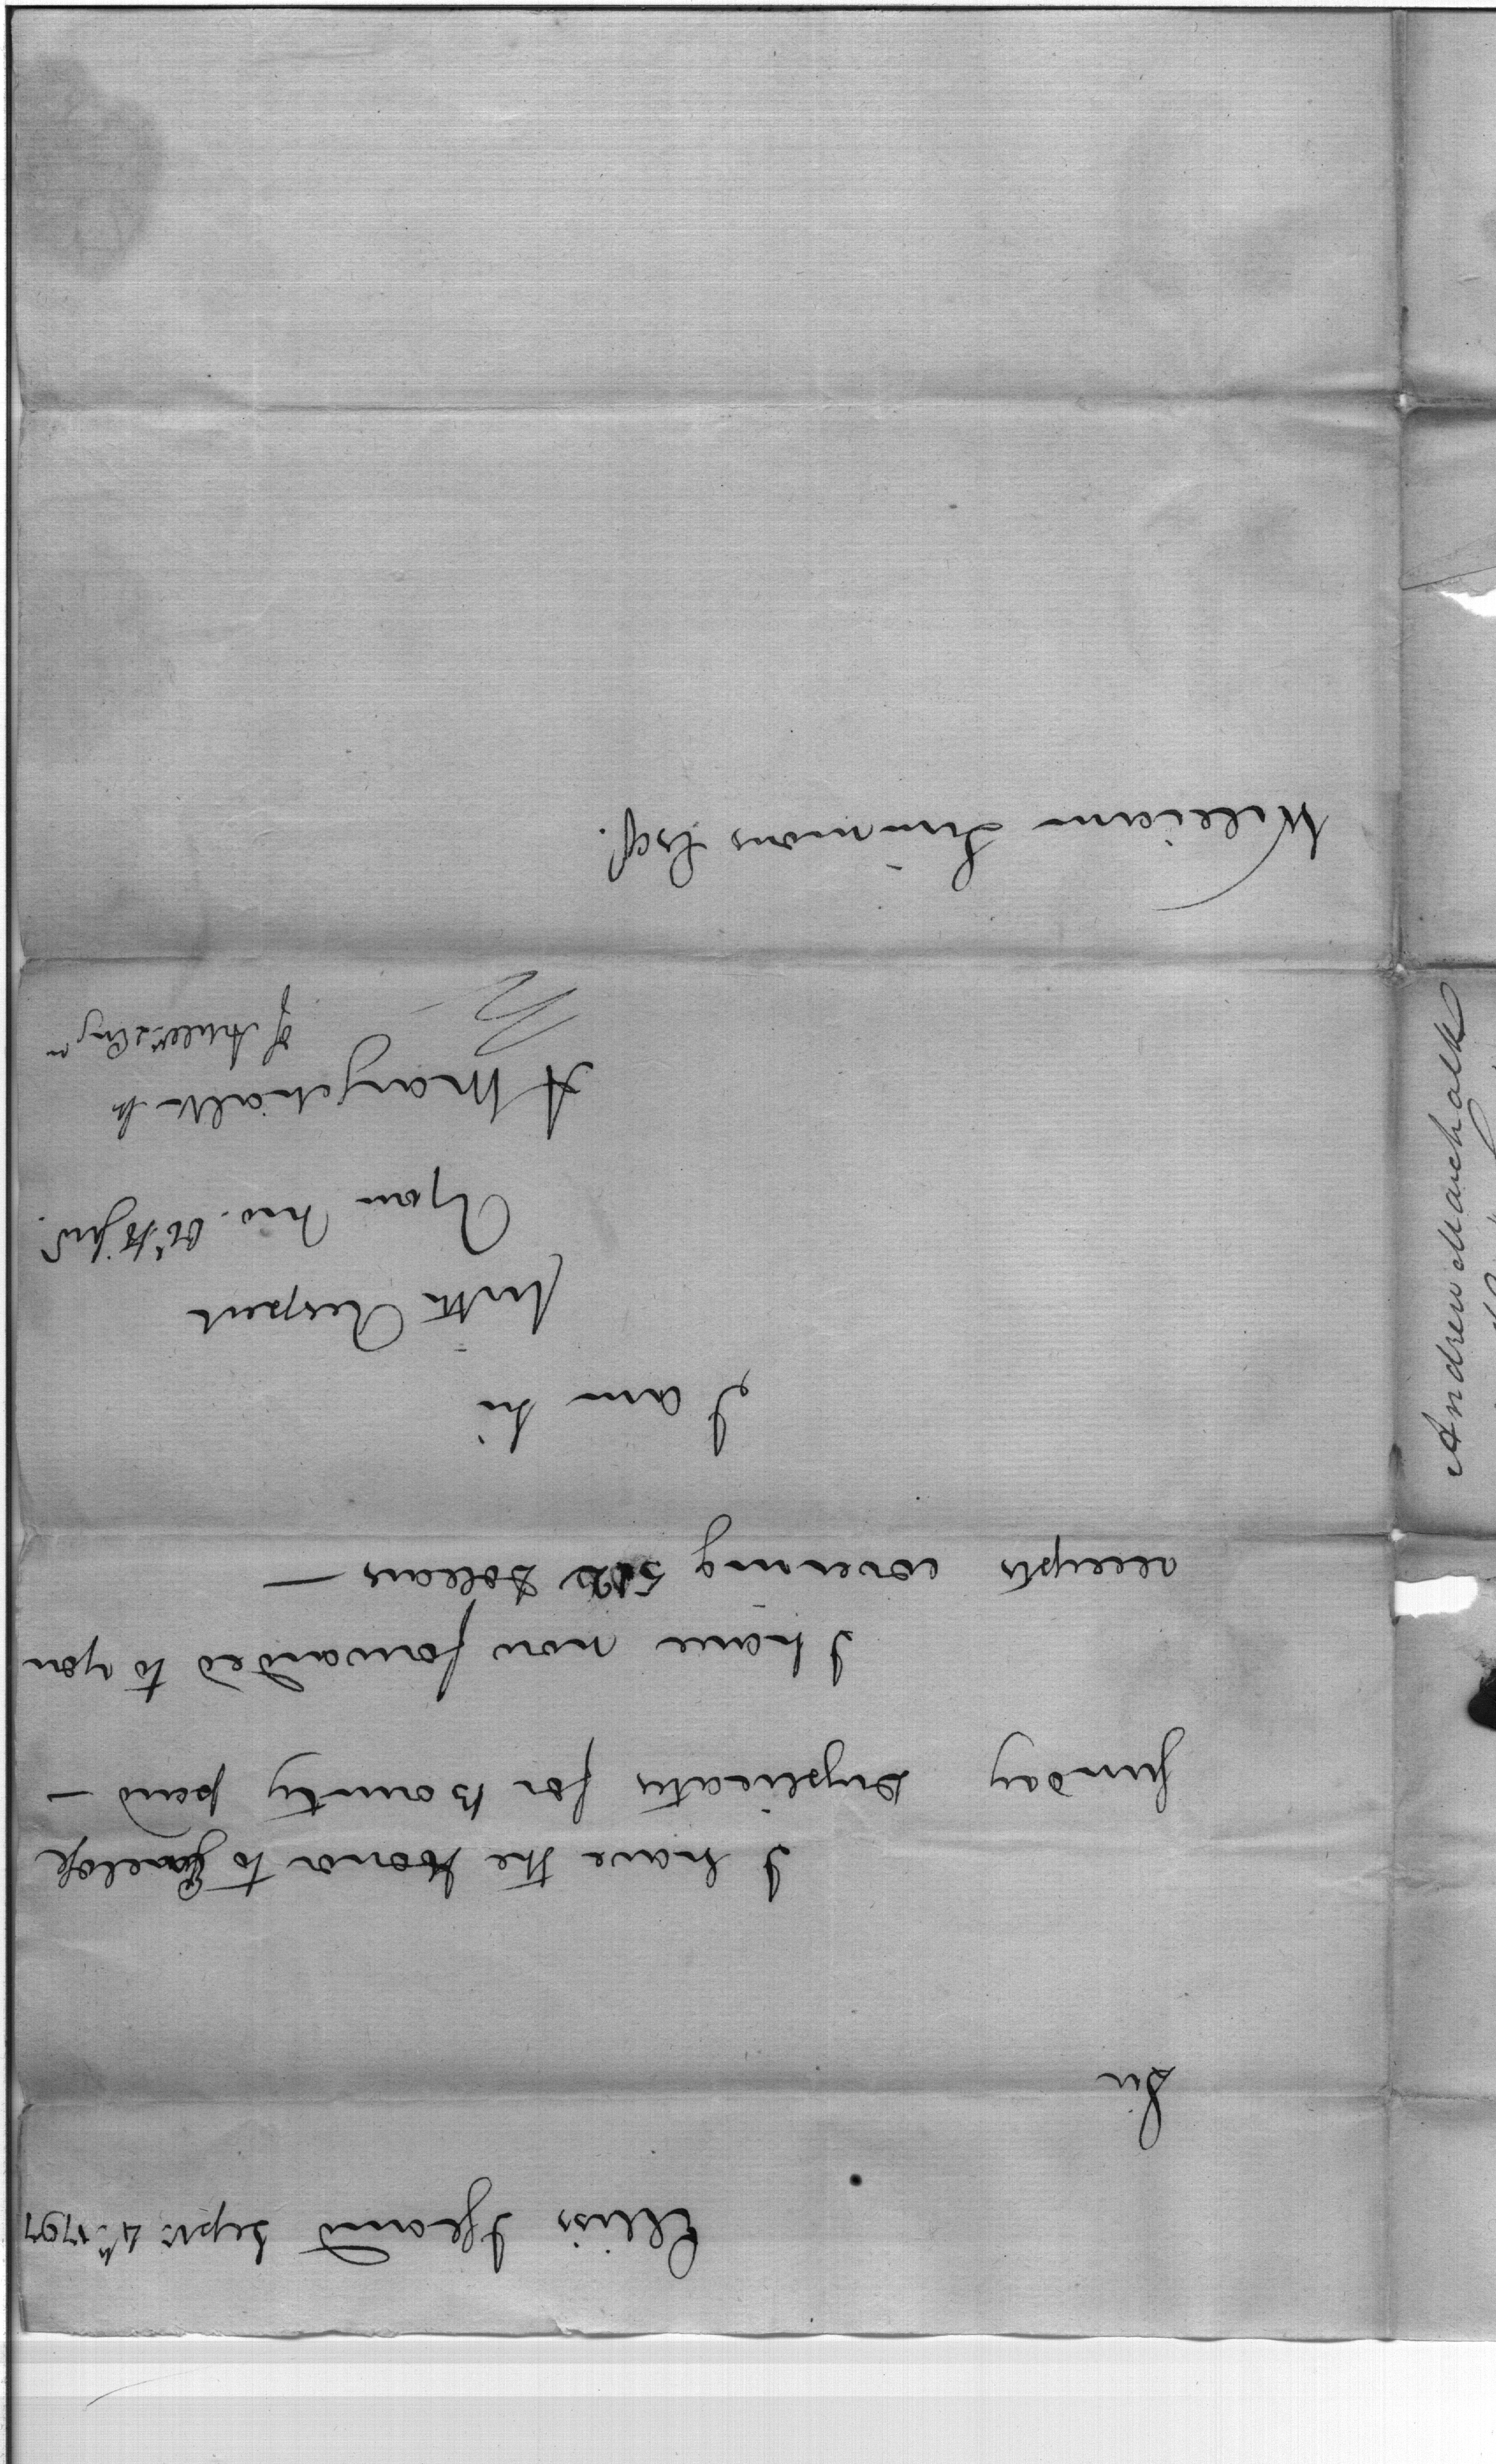 Ellis Island Septr. 4th 1797
Sir
I have the Honor to Enclose
Sunday Duplicates for Bounty paid —
I have now forwarded to you
receipts covering Dollars —
I am Sir
with Respect
Your mo. Obt
A Marschalk
of Artillr. & Engrs
William Simmons Esqr.
Andrew Marchalk